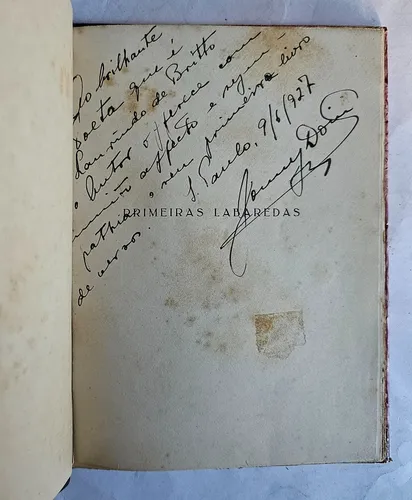 Ao brilhante
poeta que é
Laurindo de Britto
o autor offerece com
muito affecto e sym-
pathia, o seu primeiro livro
de versos.
S. Paulo, 9/6/927
PRIMEIRAS LABAREDAS